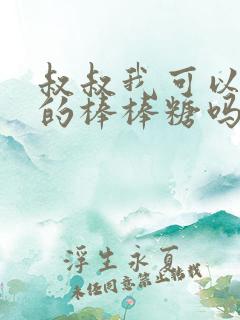 叔叔我可以
的棒棒糖吗
浮生永夏
未经同意禁止转载